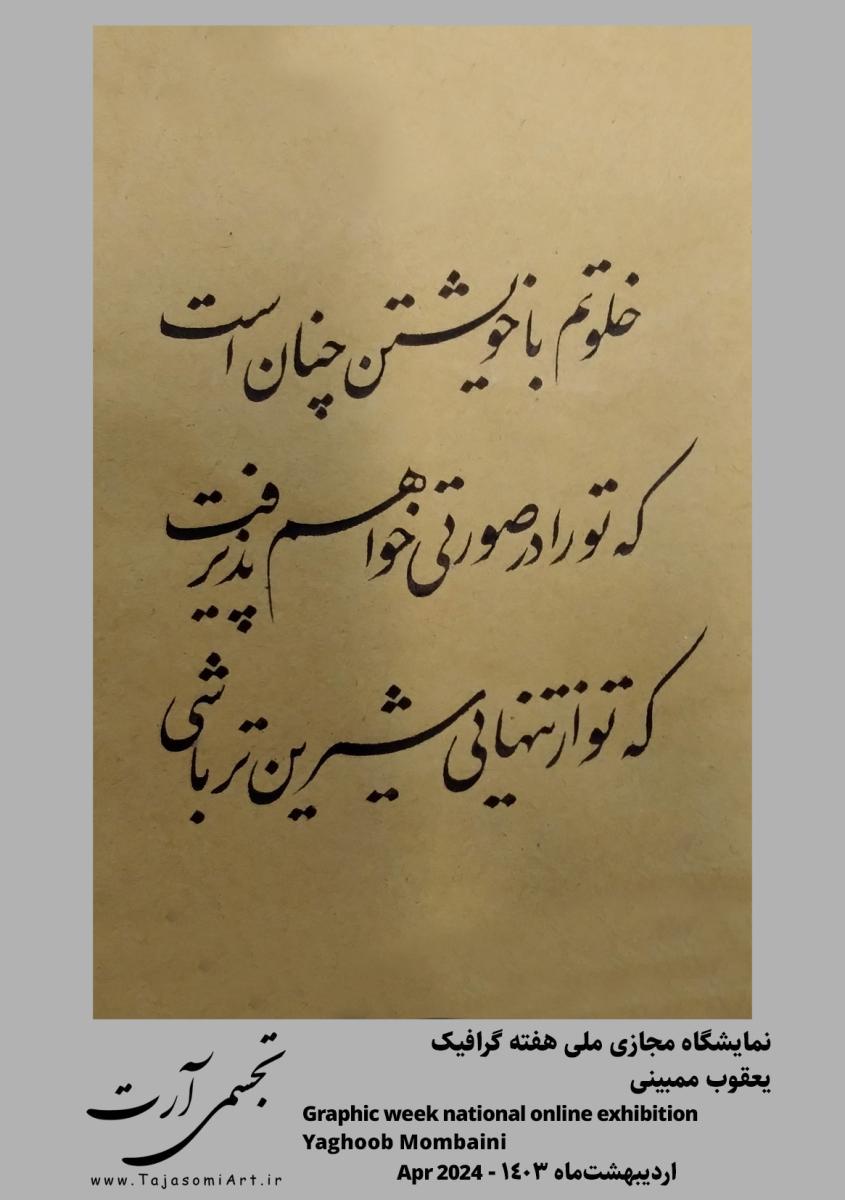 خلوتم با خویشتن چنان است
که تو را در صورتی خواهم پذیرفت
که تو از تنهایی شیرین تر باشی
نمایشگاه مجازی ملی هفته گرافیک
یعقوب ممبینی
Graphic week national online exhibition
Yaghoob Mombaini
اردیبهشت‌ماه ۱٤۰۳ - Apr 2024
تجسمی آرت
www.TajasomiArt.ir